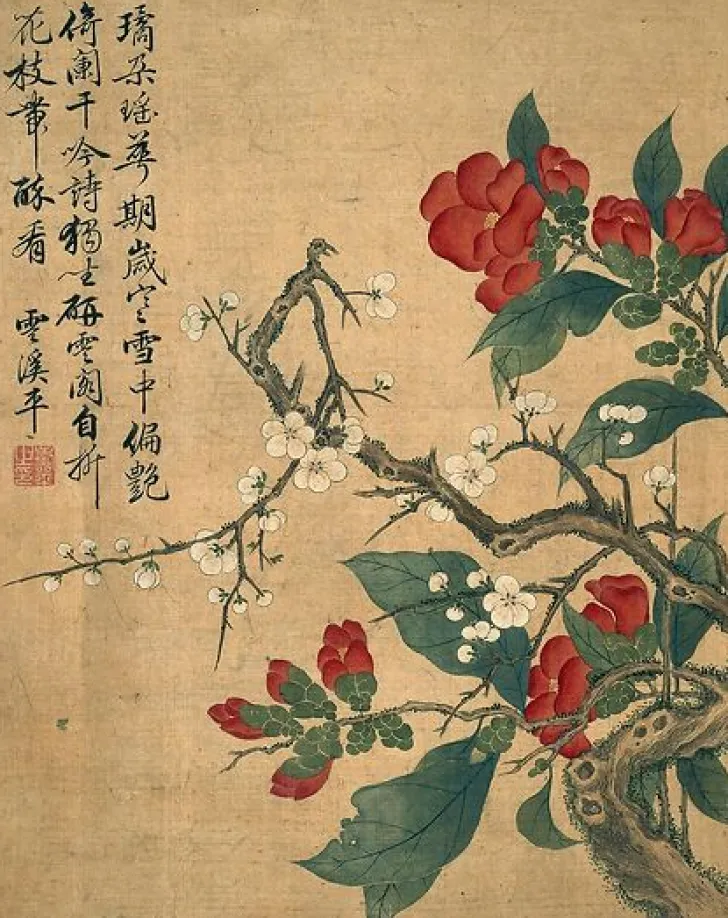 璚朵瑶華期歲寒雪中偏艷
倚闌干吟詩獨坐研雲閣自折
花枝帶醉看 雲溪平